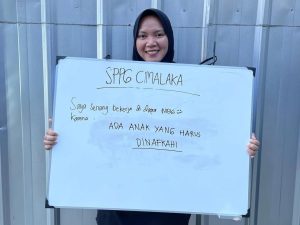 SPPG CIMALAKA
Saya Senang bekerja di dapur MBG
Karena :
ADA ANAK YANG HARUS
DINAFKAHI